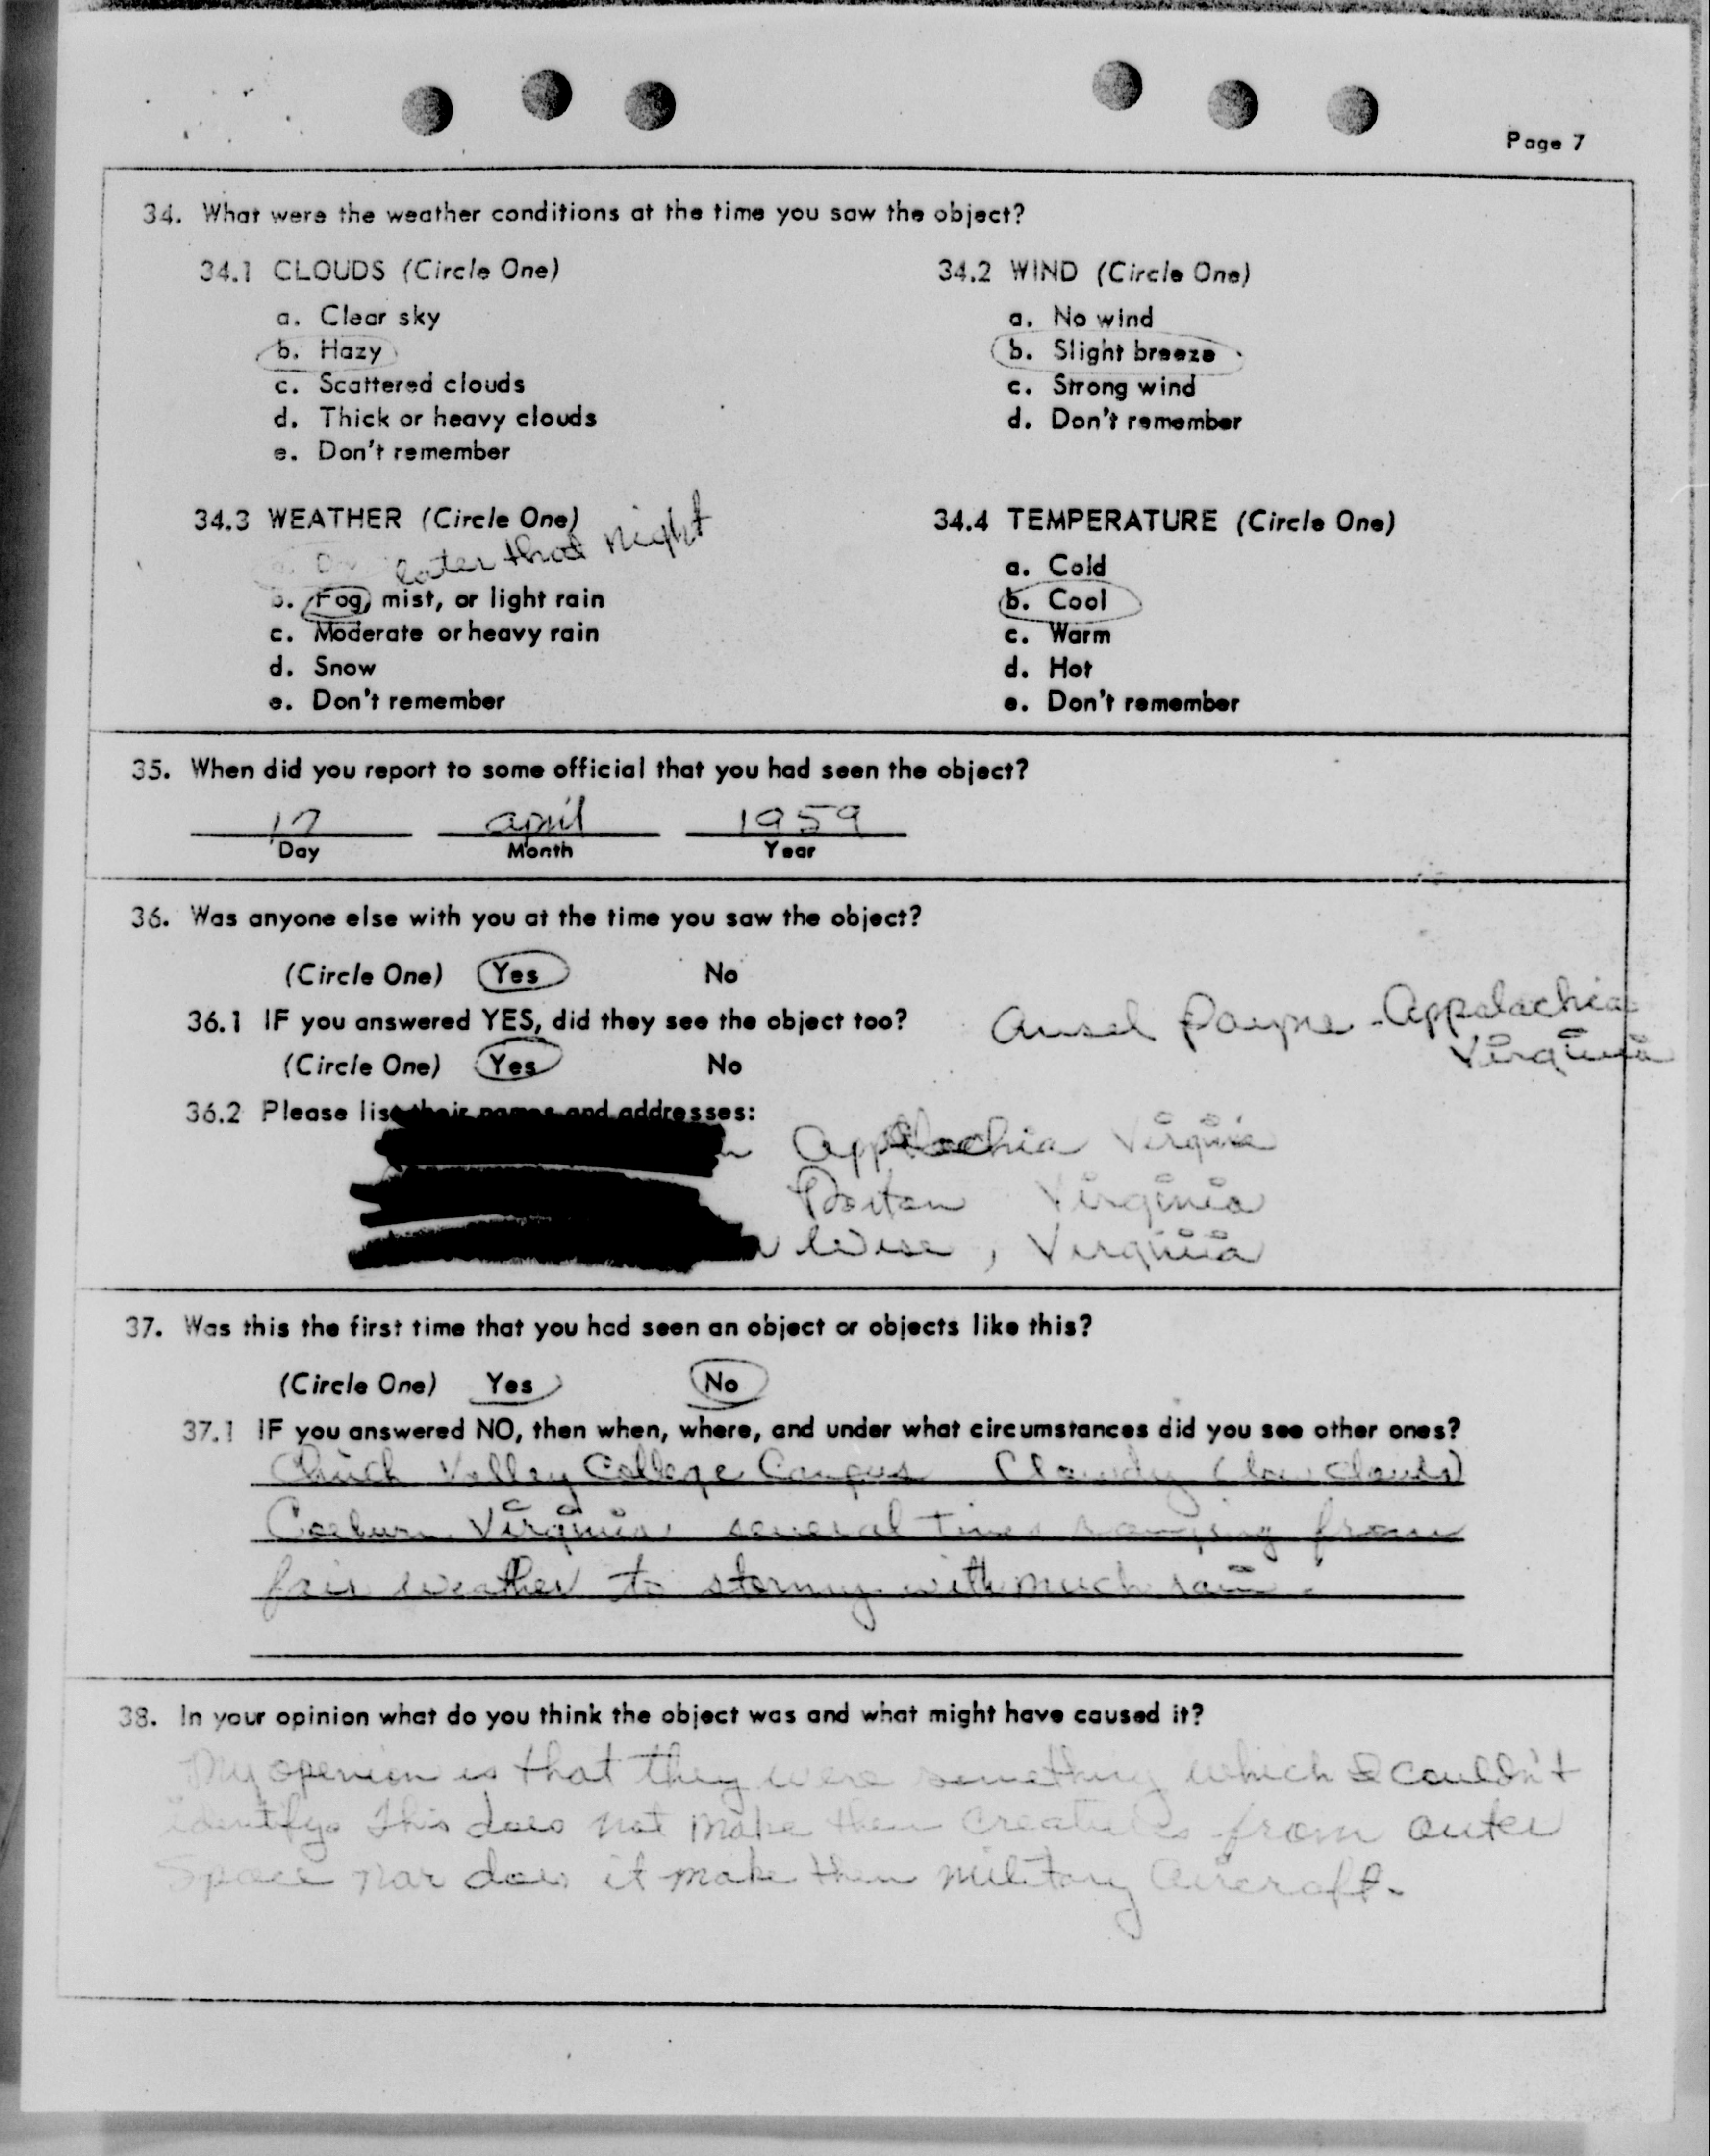 Page 7
34. What were the weather conditions at the time you saw the object?
34.1 CLOUDS (Circle One)
a. Clear sky
b. Hazy
c. Scattered clouds
d. Thick or heavy clouds
e. Don't remember
34.2 WIND (Circle One)
a. No wind
b. Slight breeze
c. Strong wind
d. Don't remember
34.3 WEATHER (Circle One)
later that night
b. Fog, mist, or light rain
c. Moderate or heavy rain
d. Snow
e. Don't remember
34.4 TEMPERATURE (Circle One)
a. Cold
b. Cool
c. Warm
d. Hot
e. Don't remember
35. When did you report to some official that you had seen the object?
17 april 1959
Day Month Year
36. Was anyone else with you at the time you saw the object?
(Circle One) Yes No
36.1 IF you answered YES, did they see the object too?
(Circle One) Yes No
Ansel Payne - Appalachia
Virginia
36.2 Please list their names and addresses:
Appalachia Virginia
Virginia
Wise, Virginia
37. Was this the first time that you had seen an object or objects like this?
(Circle One) Yes No
37.1 IF you answered NO, then when, where, and under what circumstances did you see other ones?
Valley College Campus Cloudy (low clouds)
Coeburn Virginia, several times ranging from
fair weather to stormy with much rain.
38. In your opinion what do you think the object was and what might have caused it?
My openion is that they were something which I couldn't
identify. This does not make them creatures from outer
space nor does it make them military aircraft.